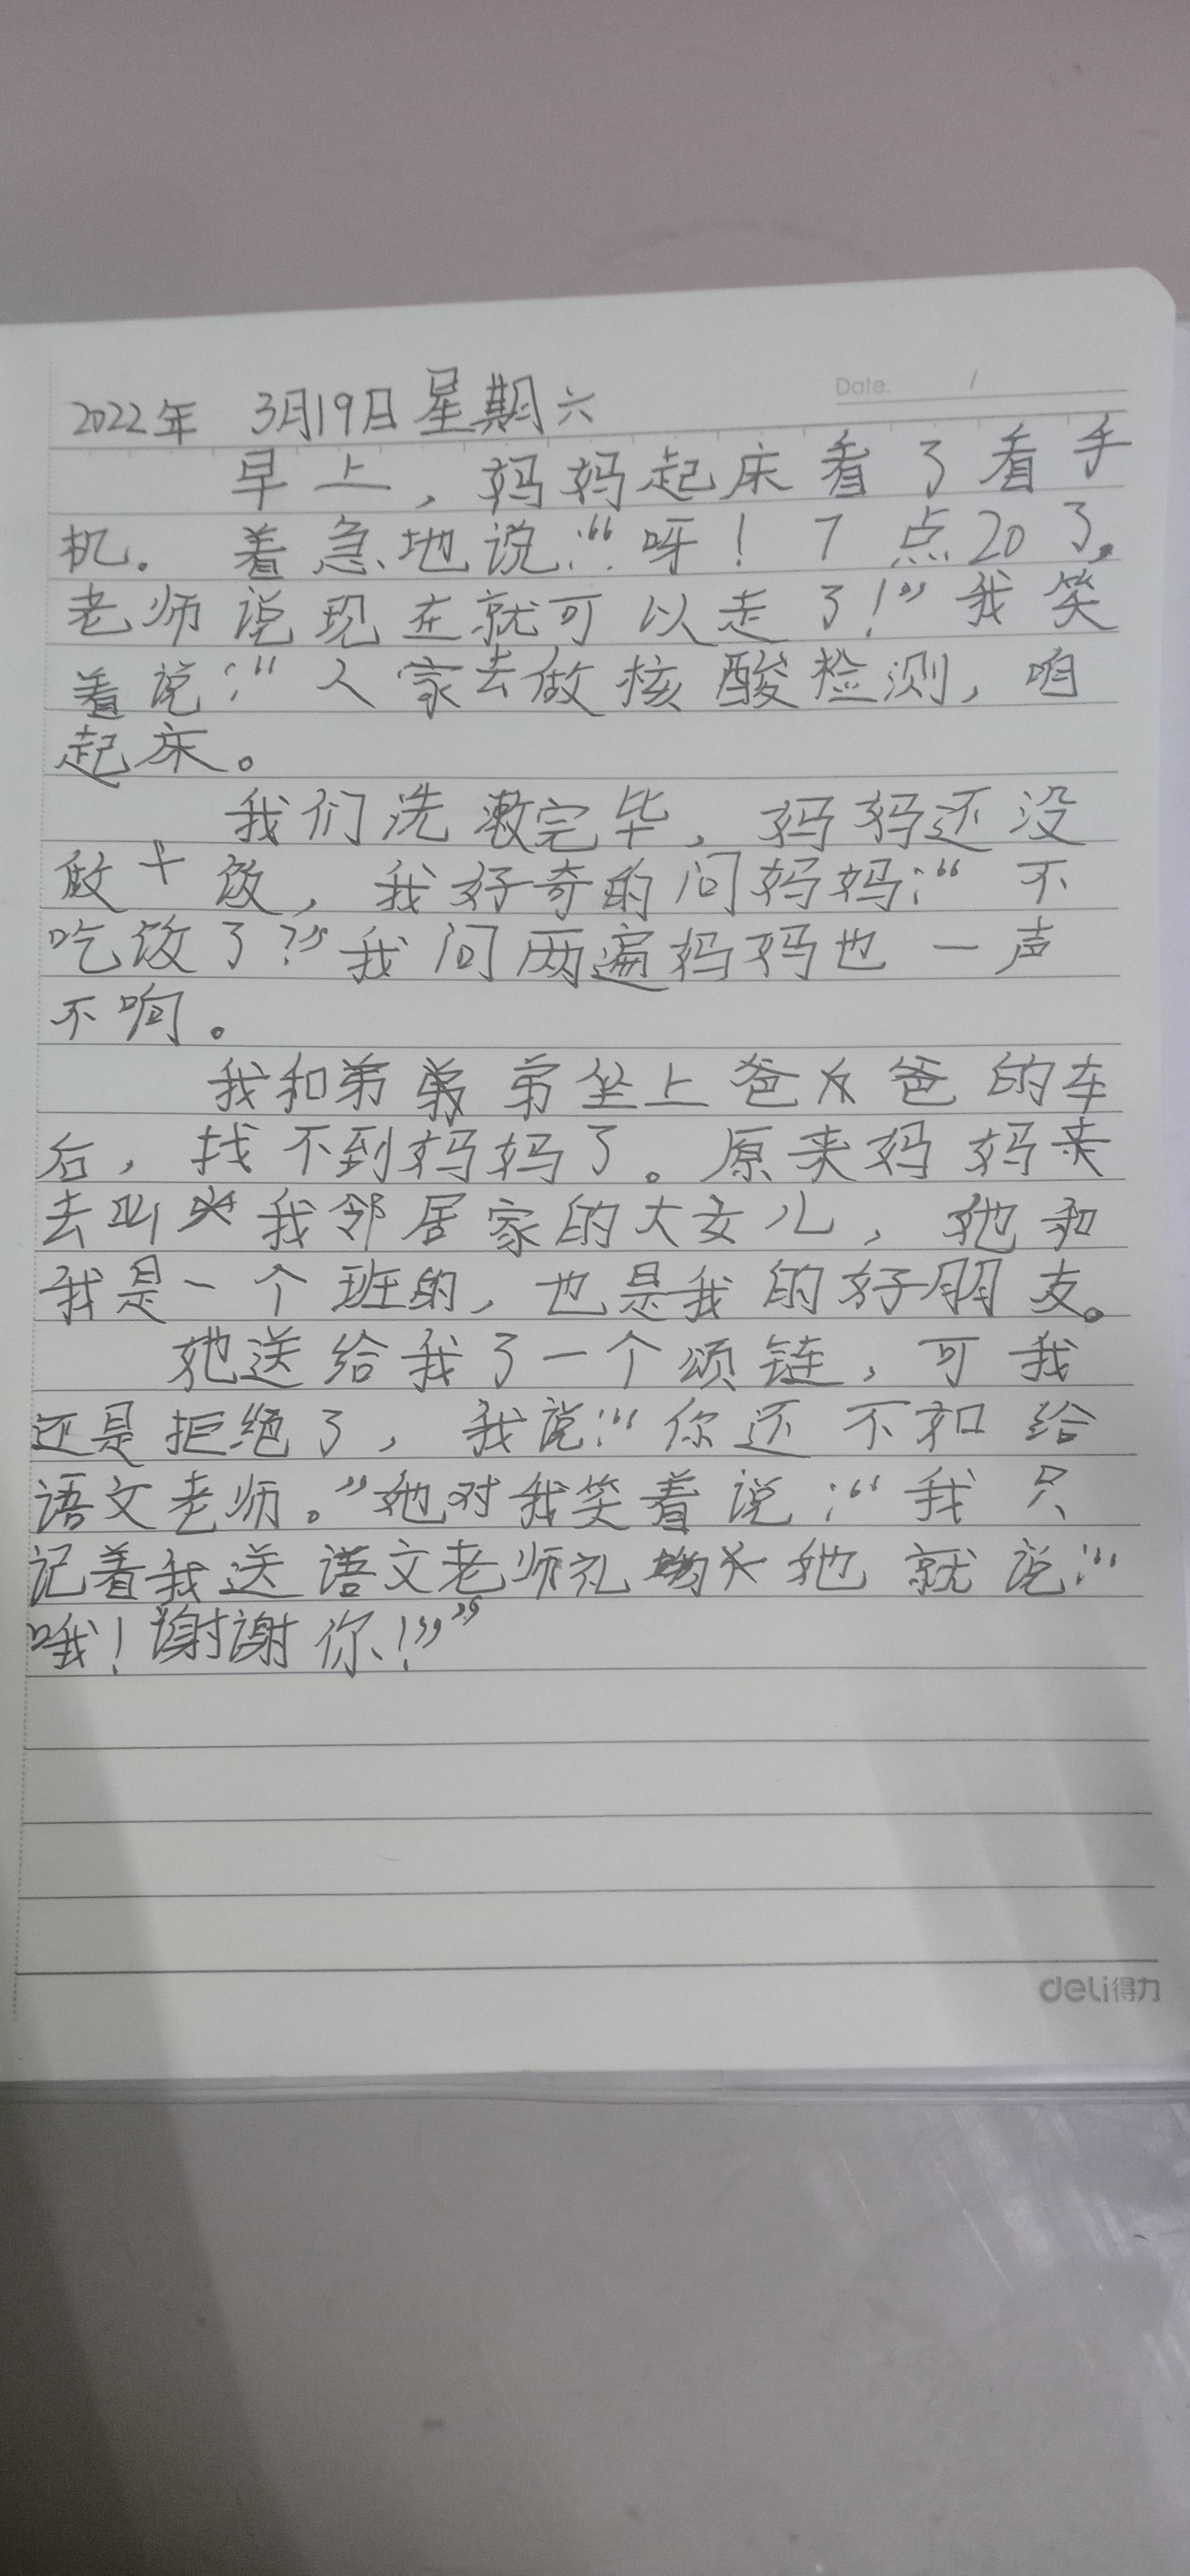 Date. /
2022年 3月19日星期六
早上，妈妈起床看了看手
机。着急地说：“呀！7点20了，
老师说现在就可以走了！”我笑
着说：“人家去做核酸检测，咱
起床。
我们洗漱完毕，妈妈还没
做饭，我好奇的问妈妈：“不
吃饭了？”我问两遍妈妈也一声
不响。
我和弟弟坐上爸爸的车
后，找不到妈妈了。原来妈妈来
去叫我邻居家的大女儿，她和
我是一个班的，也是我的好朋友。
她送给我了一个颂链，可我
还是拒绝了，我说：“你还不如给
语文老师。”她对我笑着说：“我只
记着我送语文老师礼她就说：“
哦！谢谢你！””
deli得力